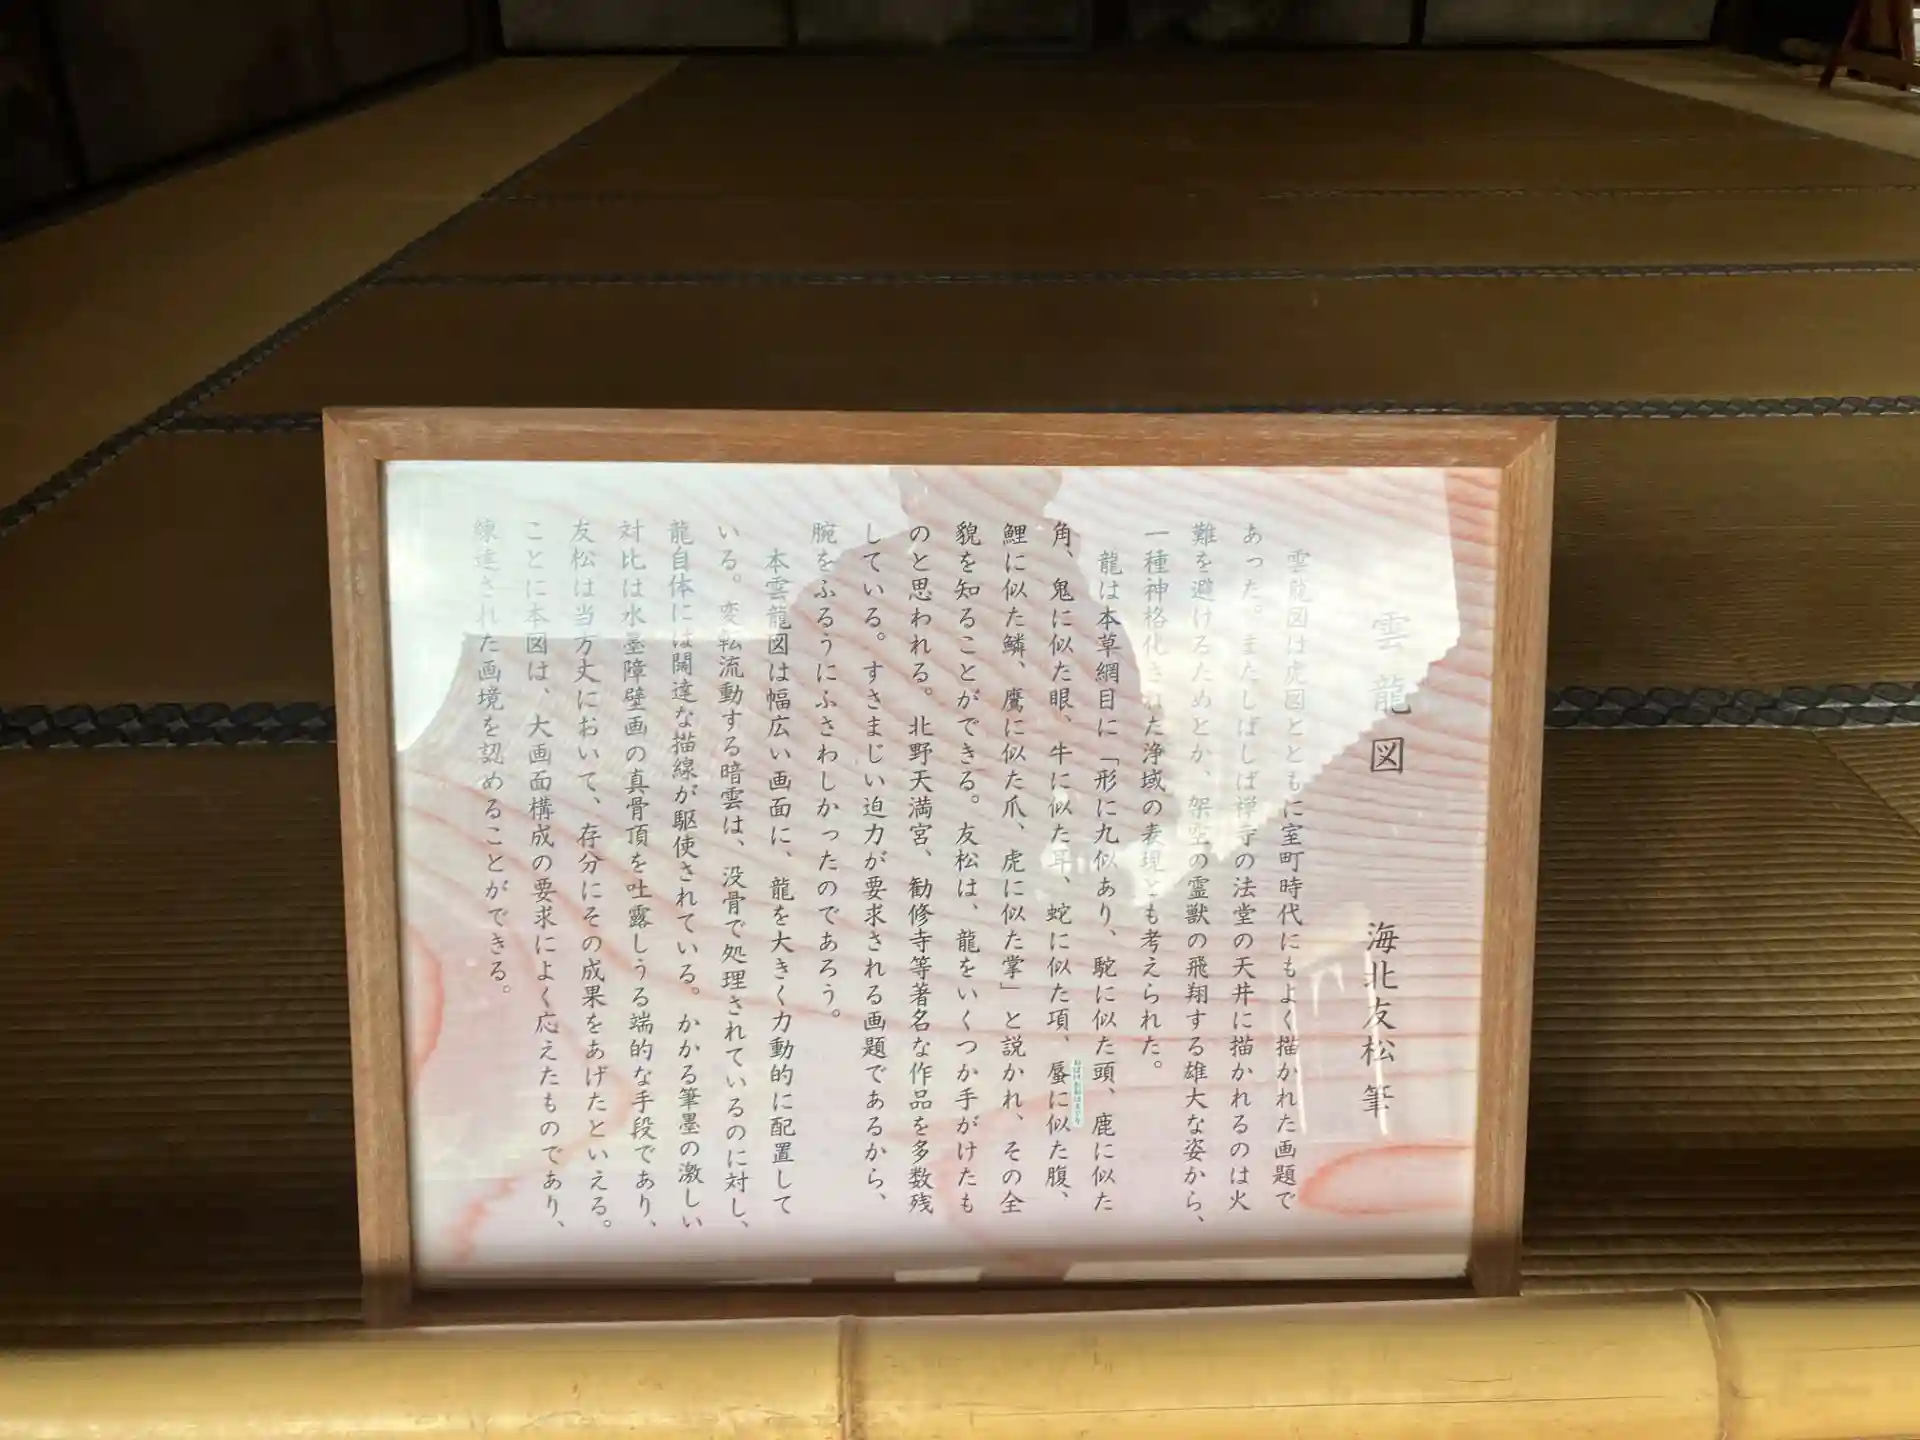 雲龍図　海北友松筆
雲龍図は虎図とともに室町時代にもよく描かれた画題で
あった。またしばしば禅寺の法堂の天井に描かれるのは火
難を避けるためとか、架空の霊獣の飛翔する雄大な姿から、
一種神格化された浄域の表現とも考えられた。
龍は本草網目に「形に九似あり、駝に似た頭、鹿に似た
角、鬼に似た眼、牛に似た耳、蛇に似た項、蜃に似た腹、
鯉に似た鱗、鷹に似た爪、虎に似た掌」と説かれ、その全
貌を知ることができる。友松は、龍をいくつか手がけたも
のと思われる。北野天満宮、勧修寺等著名な作品を多数残
している。すさまじい迫力が要求される画題であるから、
腕をふるうにふさわしかったのであろう。
本雲龍図は幅広い画面に、龍を大きく力動的に配置して
いる。変転流動する暗雲は、没骨で処理されているのに対し、
龍自体には闊達な描線が駆使されている。かかる筆墨の激しい
対比は水墨障壁画の真骨頂を吐露しうる端的な手段であり、
友松は当方丈において、存分にその成果をあげたといえる。
ことに本図は、大画面構成の要求によく応えたものであり、
練達された画境を認めることができる。